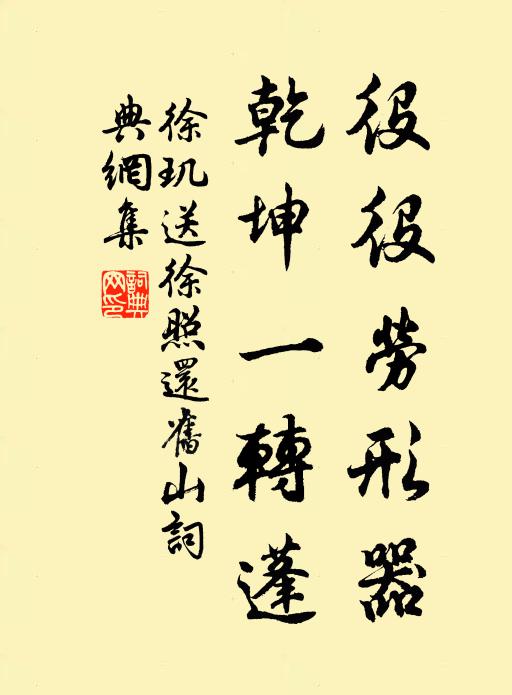 役役勞形器
乾坤一轉蓬
徐璣送徐照還舊山詞
典網集
詞典網印